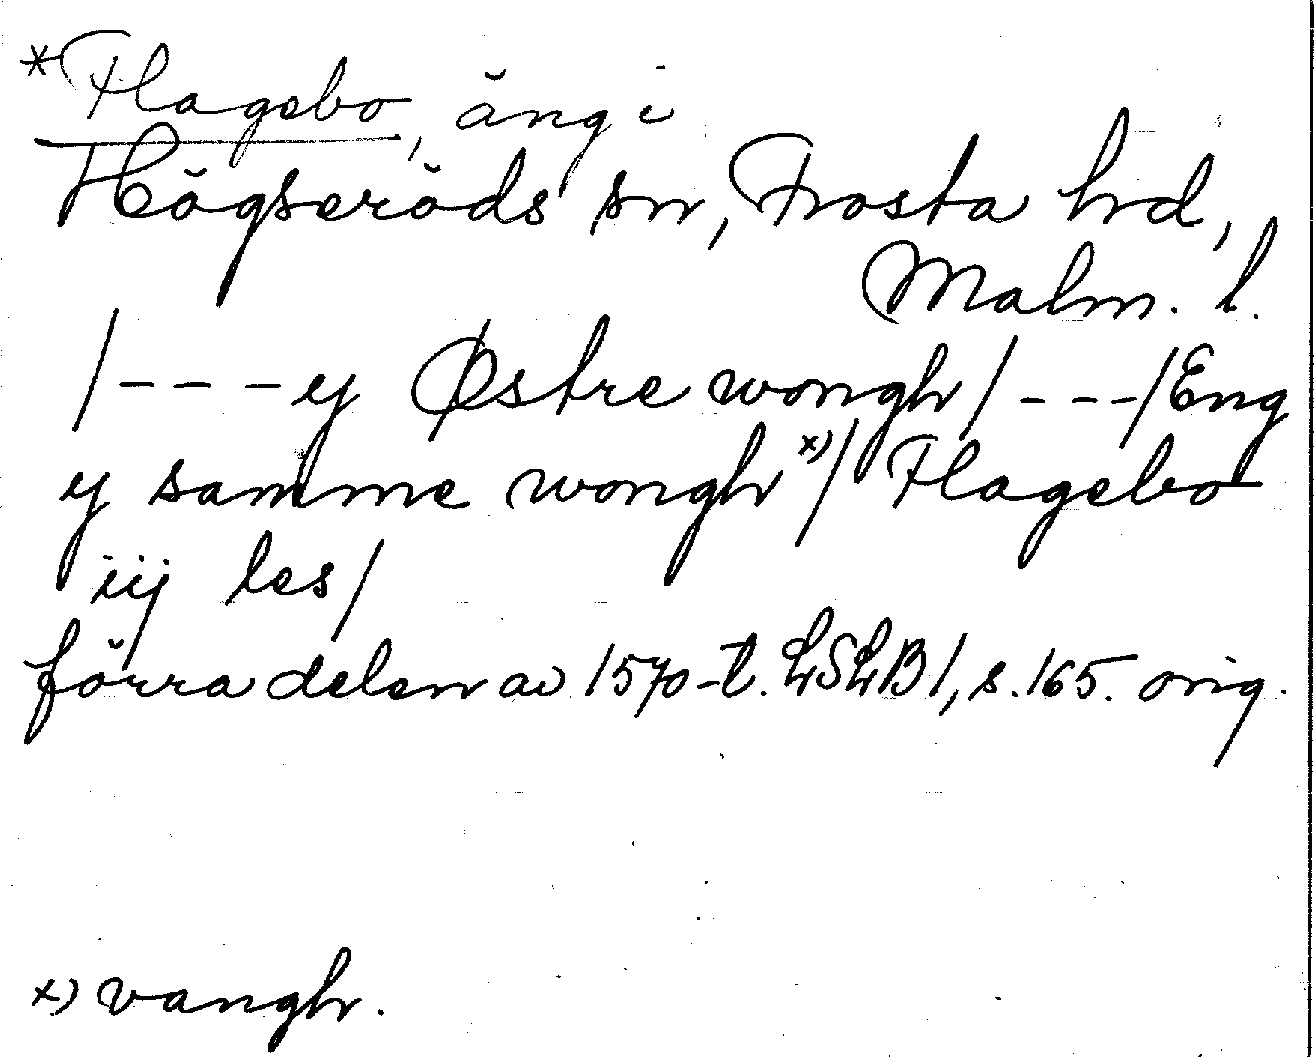 *Flagebo, äng i
Högseröds sn, Frosta hd,
Malm. l.
/--- y Østre wongh/ ---/Eng
y samme wongh x)/ Flagebo
iij les/
förra delen av 1570-t. LSLB1, s. 165. orig.
x) vangh.